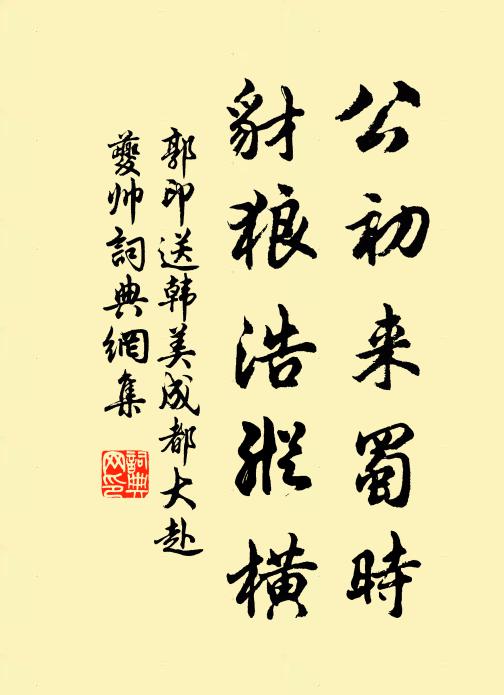 公初来蜀時
豺狼浩縱橫
郭印送韩美成都大赴
夔帅詞典網集
詞典
网印